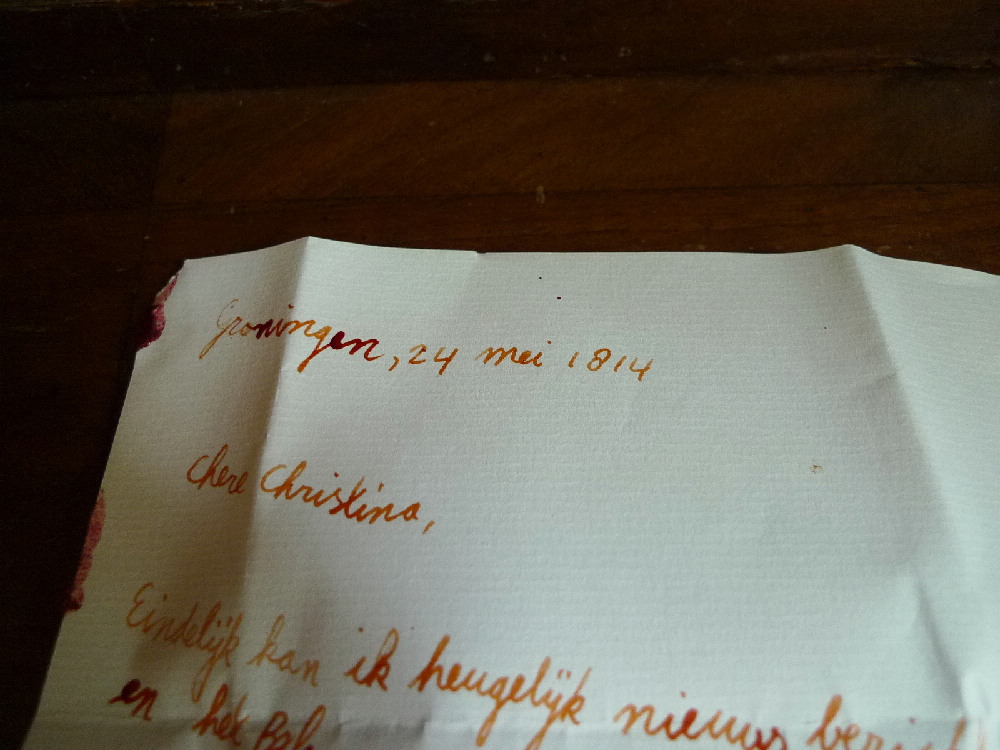 Groningen, 24 mei 1814
Chere Christina,
Eindelijk kan ik heugelijk nieuws
en het